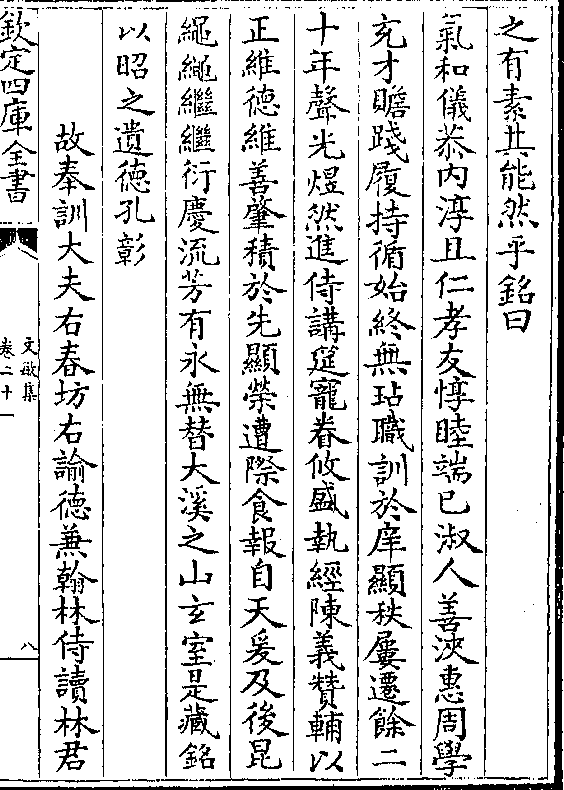 之有素其能然乎銘曰
氣和儀恭內淳且仁孝友惇睦端已淑人善浹惠周學
充才瞻踐履持循始終無玷職訓於庠顯秩屢遷餘二
十年聲光煜然進侍講筵寵眷攸盛執經陳義賛輔以
正維德維善肇積於先顯榮遭際食報自天爰及後昆
繩繩繼繼衍慶流芳有永無替大溪之山玄室是藏銘
以昭之遺徳孔彰
故奉訓大夫右春坊右諭徳兼翰林侍讀林君
欽定四庫全書
文敏集
卷二十
八